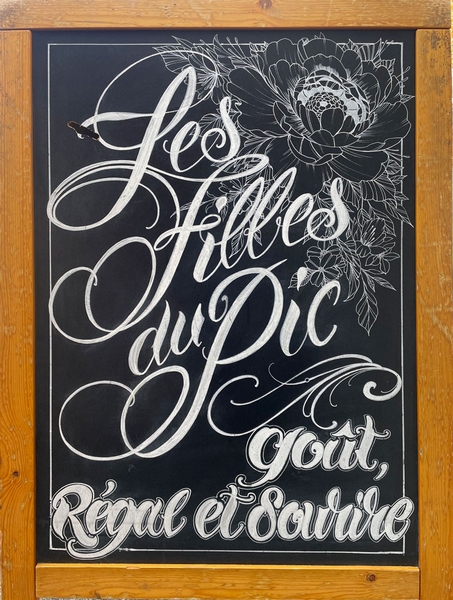 Les
Filles
du Pic
goût,
Régal et Sourire